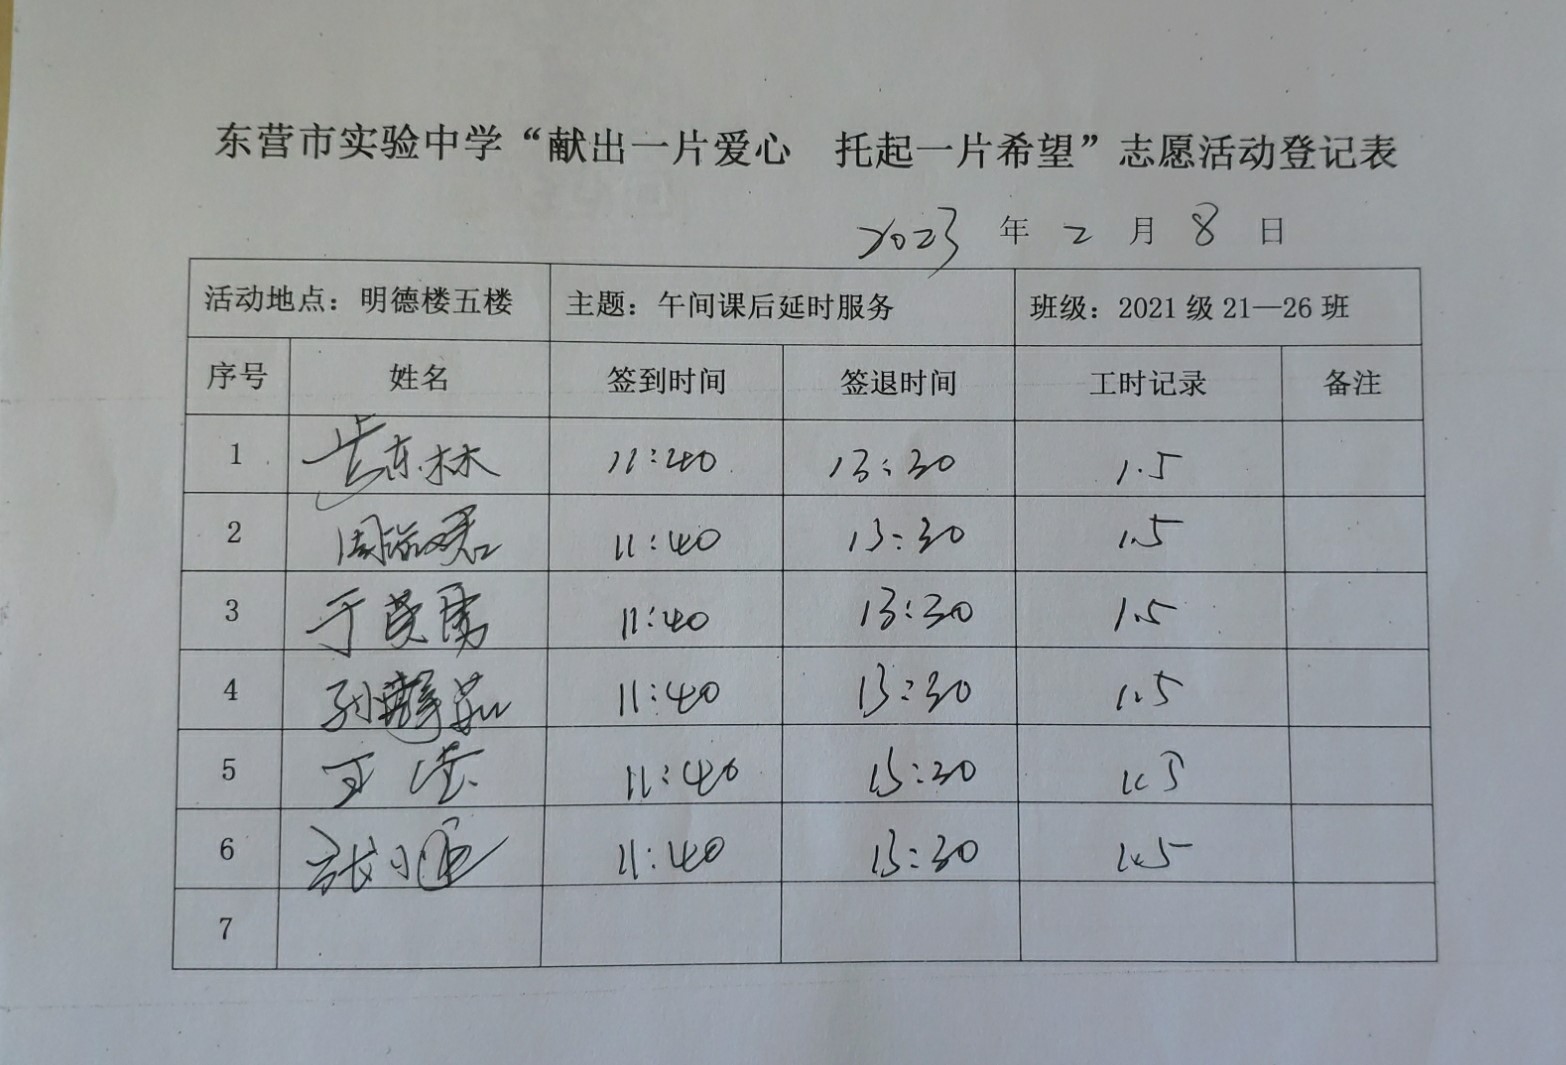 东营市实验中学“献出一片爱心 托起一片希望”志愿活动登记表
2023 年 2 月 8 日
活动地点：明德楼五楼 主题：午间课后延时服务 班级：2021 级 21—26 班
序号 姓名 签到时间 签退时间 工时记录 备注
1 东林 11:40 13:30 1.5
2 周 君 11:40 13:30 1.5
3 于 勇 11:40 13:30 1.5
4 孙 茹 11:40 13:30 1.5
5 王 11:40 13:30 1.5
6 张小 11:40 13:30 1.5
7